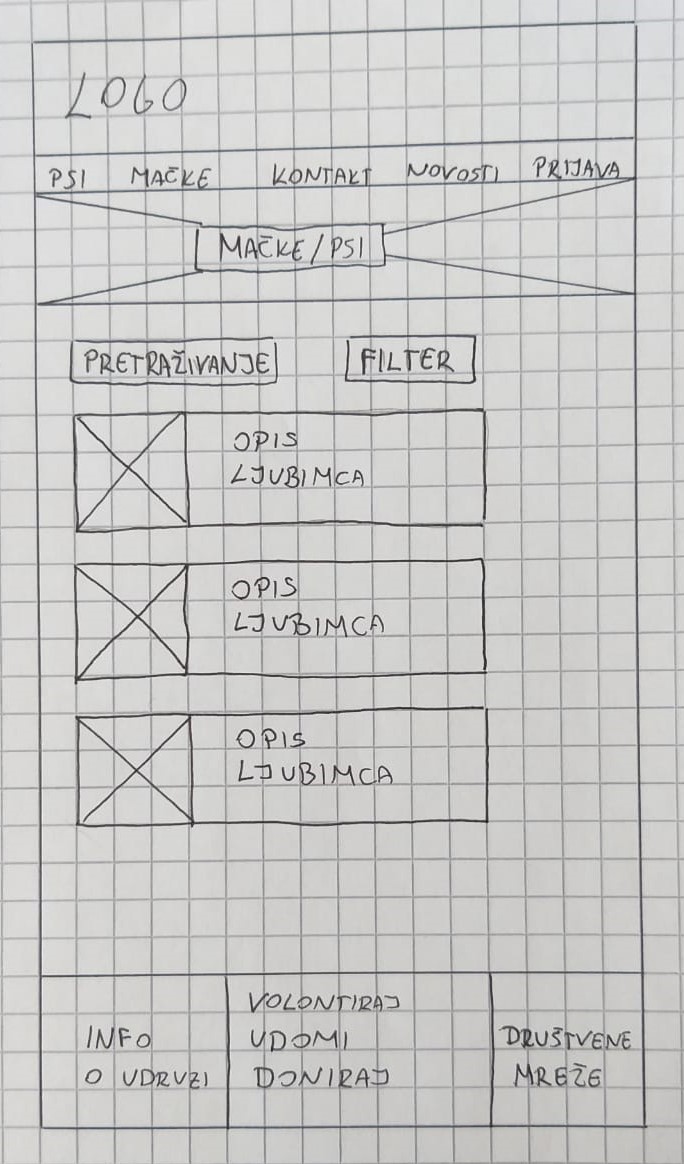 LOGO
PSI MAČKE KONTAKT NOVOSTI PRIJAVA
MAČKE/PSI
PRETRAŽIVANJE FILTER
OPIS
LJUBIMCA
OPIS
LJUBIMCA
OPIS
LJUBIMCA
INFO
O UDRUZI
VOLONTIRAJ
UDOMI
DONIRAJ
DRUŠTVENE
MREŽE